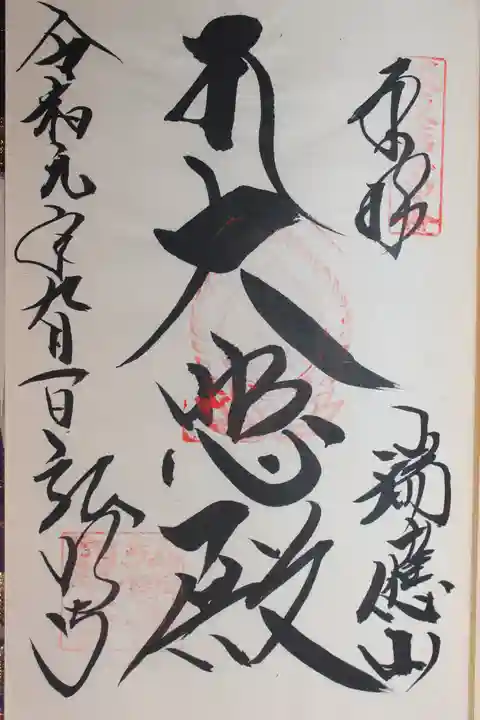 奉拝
瑞應山
大悲殿
令和元年九月一日 弘明寺